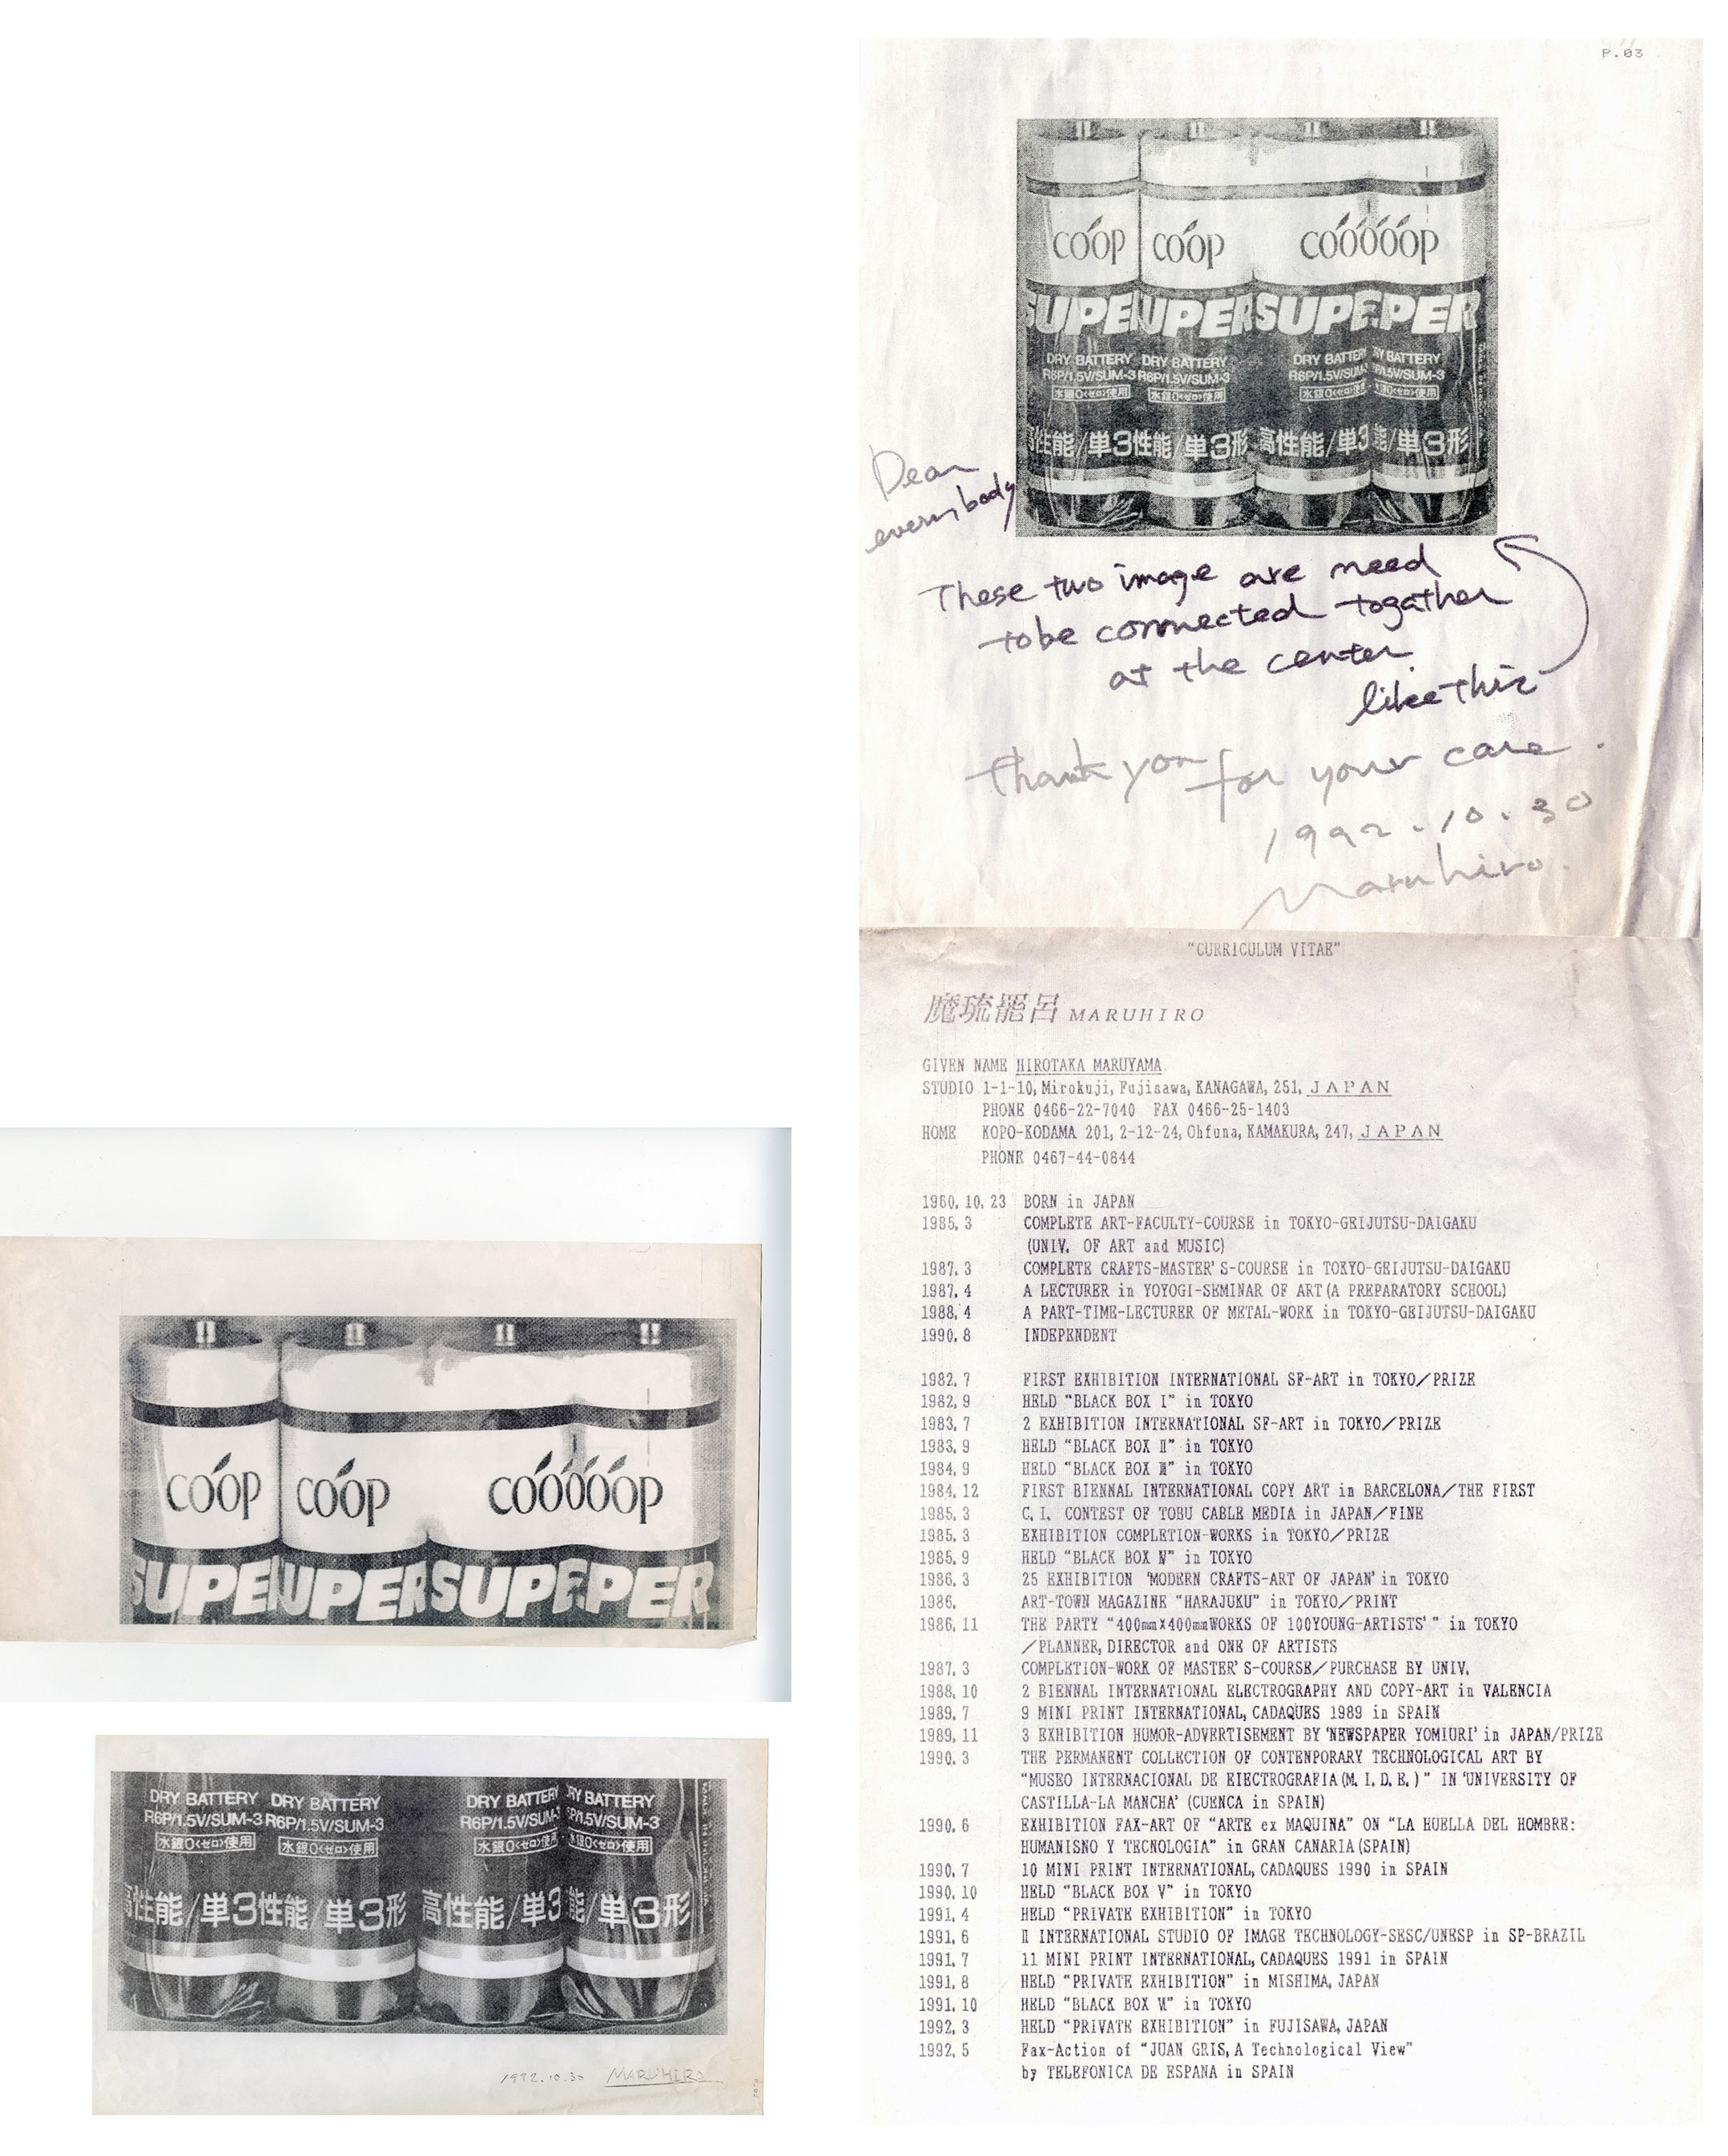 co'op co'op co'o'o'o'op
SUPE UPER SUPE PER
DRY BATTERY DRY BATTERY DRY BATTER RY BATTERY
R6P/1.5V/SUM-3 R6P/1.5V/SUM-3 R6P/1.5V/SUM- 6P/1.5V/SUM-3
水銀0<ゼロ>使用 水銀0<ゼロ>使用 水銀0<ゼロ>使 <ゼロ>使用
高性能/単3性能/単3形 高性能/単3 能/単3形
1992.10.30 MARUHIRO
P.03
co'op co'op co'o'o'o'op
SUPE UPER SUPE PER
DRY BATTERY DRY BATTERY DRY BATTER RY BATTERY
R6P/1.5V/SUM-3 R6P/1.5V/SUM-3 R6P/1.5V/SUM- P/1.5V/SUM-3
水銀0<ゼロ>使用 水銀0<ゼロ>使用 水銀0<ゼロ>使 <ゼロ>使用
高性能/単3性能/単3形 高性能/単3 能/単3形
Dear
everybody
These two image are need
tobe connected togather
at the center.
like this
Thank you for your care.
1992.10.30
Maruhiro.
"CURRICULUM VITAE"
魔琉罷呂 MARUHIRO
GIVEN NAME HIROTAKA MARUYAMA
STUDIO 1-1-10, Mirokuji, Fujisawa, KANAGAWA, 251, JAPAN
PHONE 0466-22-7040 FAX 0466-25-1403
HOME KOPO-KODAMA 201, 2-12-24, Ohfuna, KAMAKURA, 247, JAPAN
PHONE 0467-44-0844
1960, 10, 23 BORN in JAPAN
1985, 3 COMPLETE ART-FACULTY-COURSE in TOKYO-GEIJUTSU-DAIGAKU
(UNIV. OF ART and MUSIC)
1987, 3 COMPLETE CRAFTS-MASTER'S-COURSE in TOKYO-GEIJUTSU-DAIGAKU
1987, 4 A LECTURER in YOYOGI-SEMINAR OF ART(A PREPARATORY SCHOOL)
1988, 4 A PART-TIME-LECTURER OF METAL-WORK in TOKYO-GEIJUTSU-DAIGAKU
1990, 8 INDEPENDENT
1982, 7 FIRST EXHIBITION INTERNATIONAL SF-ART in TOKYO/PRIZE
1982, 9 HELD "BLACK BOX I" in TOKYO
1983, 7 2 EXHIBITION INTERNATIONAL SF-ART in TOKYO/PRIZE
1983, 9 HELD "BLACK BOX Ⅱ" in TOKYO
1984, 9 HELD "BLACK BOX Ⅲ" in TOKYO
1984, 12 FIRST BIENNAL INTERNATIONAL COPY ART in BARCELONA/THE FIRST
1985, 3 C. I. CONTEST OF TOBU CABLE MEDIA in JAPAN/FINE
1985, 3 EXHIBITION COMPLETION-WORKS in TOKYO/PRIZE
1985, 9 HELD "BLACK BOX Ⅳ" in TOKYO
1986, 3 25 EXHIBITION 'MODERN CRAFTS-ART OF JAPAN' in TOKYO
1986, ART-TOWN MAGAZINE "HARAJUKU" in TOKYO/PRINT
1986, 11 THE PARTY "400mm×400mmWORKS OF 100YOUNG-ARTISTS'" in TOKYO
/PLANNER, DIRECTOR and ONE OF ARTISTS
1987, 3 COMPLETION-WORK OF MASTER'S-COURSE/PURCHASE BY UNIV.
1988, 10 2 BIENNAL INTERNATIONAL ELECTROGRAPHY AND COPY-ART in VALENCIA
1989, 7 9 MINI PRINT INTERNATIONAL, CADAQUES 1989 in SPAIN
1989, 11 3 EXHIBITION HUMOR-ADVERTISEMENT BY 'NEWSPAPER YOMIURI' in JAPAN/PRIZE
1990, 3 THE PERMANENT COLLECTION OF CONTENPORARY TECHNOLOGICAL ART BY
"MUSEO INTERNACIONAL DE EIECTROGRAFIA(M. I. D. E.)" IN 'UNIVERSITY OF
CASTILLA-LA MANCHA' (CUENCA in SPAIN)
1990, 6 EXHIBITION FAX-ART OF "ARTE ex MAQUINA" ON "LA HUELLA DEL HOMBRE:
HUMANISNO Y TECNOLOGIA" in GRAN CANARIA(SPAIN)
1990, 7 10 MINI PRINT INTERNATIONAL, CADAQUES 1990 in SPAIN
1990, 10 HELD "BLACK BOX Ⅴ" in TOKYO
1991, 4 HELD "PRIVATE EXHIBITION" in TOKYO
1991, 6 Ⅱ INTERNATIONAL STUDIO OF IMAGE TECHNOLOGY-SESC/UNESP in SP-BRAZIL
1991, 7 11 MINI PRINT INTERNATIONAL, CADAQUES 1991 in SPAIN
1991, 8 HELD "PRIVATE EXHIBITION" in MISHIMA, JAPAN
1991, 10 HELD "BLACK BOX Ⅵ" in TOKYO
1992, 3 HELD "PRIVATE EXHIBITION" in FUJISAWA, JAPAN
1992, 5 Fax-Action of "JUAN GRIS, A Technological View"
by TELEFONICA DE ESPANA in SPAIN